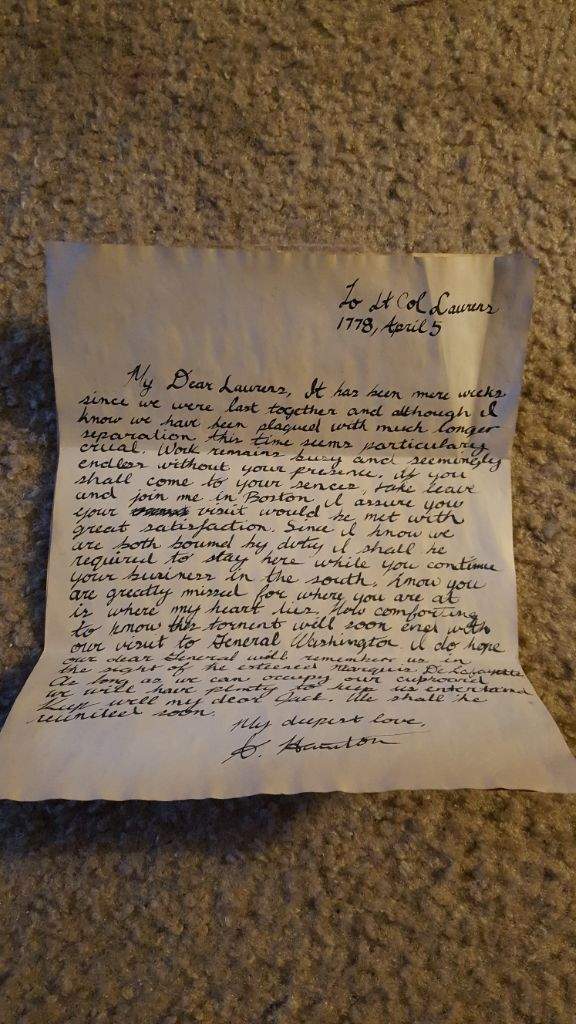 To Lt Col Laurens
1778, April 5
My Dear Laurens, It has been mere weeks
since we were last together and although I
know we have been plagued with much longer
separation, this time seems particulary
crual. Work remains busy and seemingly
endless without your presence, if you
shall come to your sences, take leave
and join me in Boston I assure you
your visit would be met with
great satisfaction. Since I know we
are both bound by duty I shall be
required to stay here while you continue
your buriness in the south. Know you
are greatly missed for where you are at
is where my heart lies. How comforting
to know this torment will soon end with
our visit to General Washington. I do hope
our dear General will remember us in
the sight of the esteemed marquis De Lafayette
As long as we can occupy our cupboard
we will have plenty to keep us entertained
Keep well my dear Jack. We shall be
reunited soon.
My deepest love,
A. Hamilton